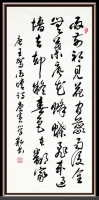 雨前初見花間蕊雨後全
無葉底花蜂蝶飛來過
墻去却疑春色在鄰家
唐王駕雨晴詩庚寅